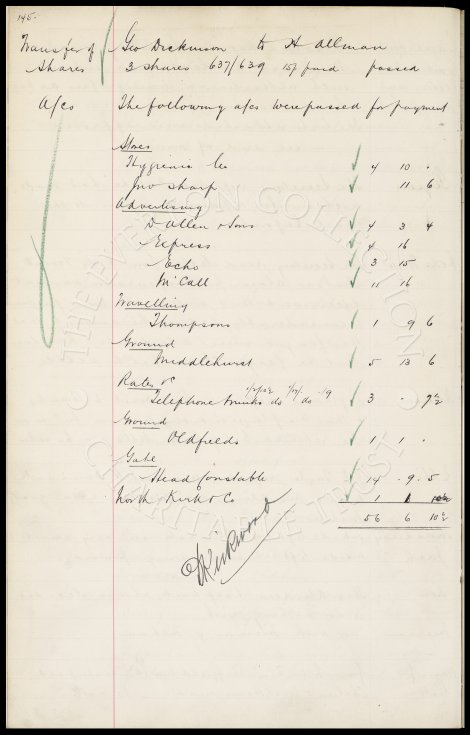 145.
Transfer of Shares
Geo Dickinson to H Allman
3 shares 637/639 15/ paid passed
A/cs The following a/cs were passed for payment
Stores
Hygienic Co 4 10 .
Jno Sharp 11 6
Advertising
D Allen & Sons 4 3 4
Express 4 16
Echo 3 15
McCall 11 16
Travelling
Thompsons 1 9 6
Ground
Middlehurst 5 13 6
Rates &c
Telephone trunks do do 3 - 7½
Ground
Oldfields 1 1 .
Gate
Head Constable 14 9 5
North Kirk & Co 1 1
56 6 10½
Kirkwood
© THE EVERTON COLLECTION
CHARITABLE TRUST